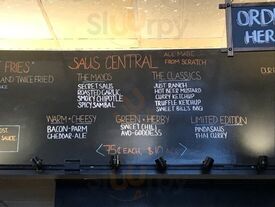 ORDER
HERE
FRIES"
SAUS CENTRAL
ALL MADE
FROM SCRATCH
AND TWICE FRIED
THE MAYOS
SECRET SAUS
ROASTED GARLIC
SMOKY CHIPOTLE
SPICY SAMBAL
THE CLASSICS
JUST RANCH
HOT BEER MUSTARD
CURRY KETCHUP
TRUFFLE KETCHUP
SWEET BILL'S BBQ
WARM + CHEESY
BACON-PARM
CHEDDAR-ALE
GREEN + HERBY
SWEET CHILI
AVO-GODDESS
LIMITED EDITION
PINDASAUS
THAI CURRY
SAUCE
75¢ EACH,